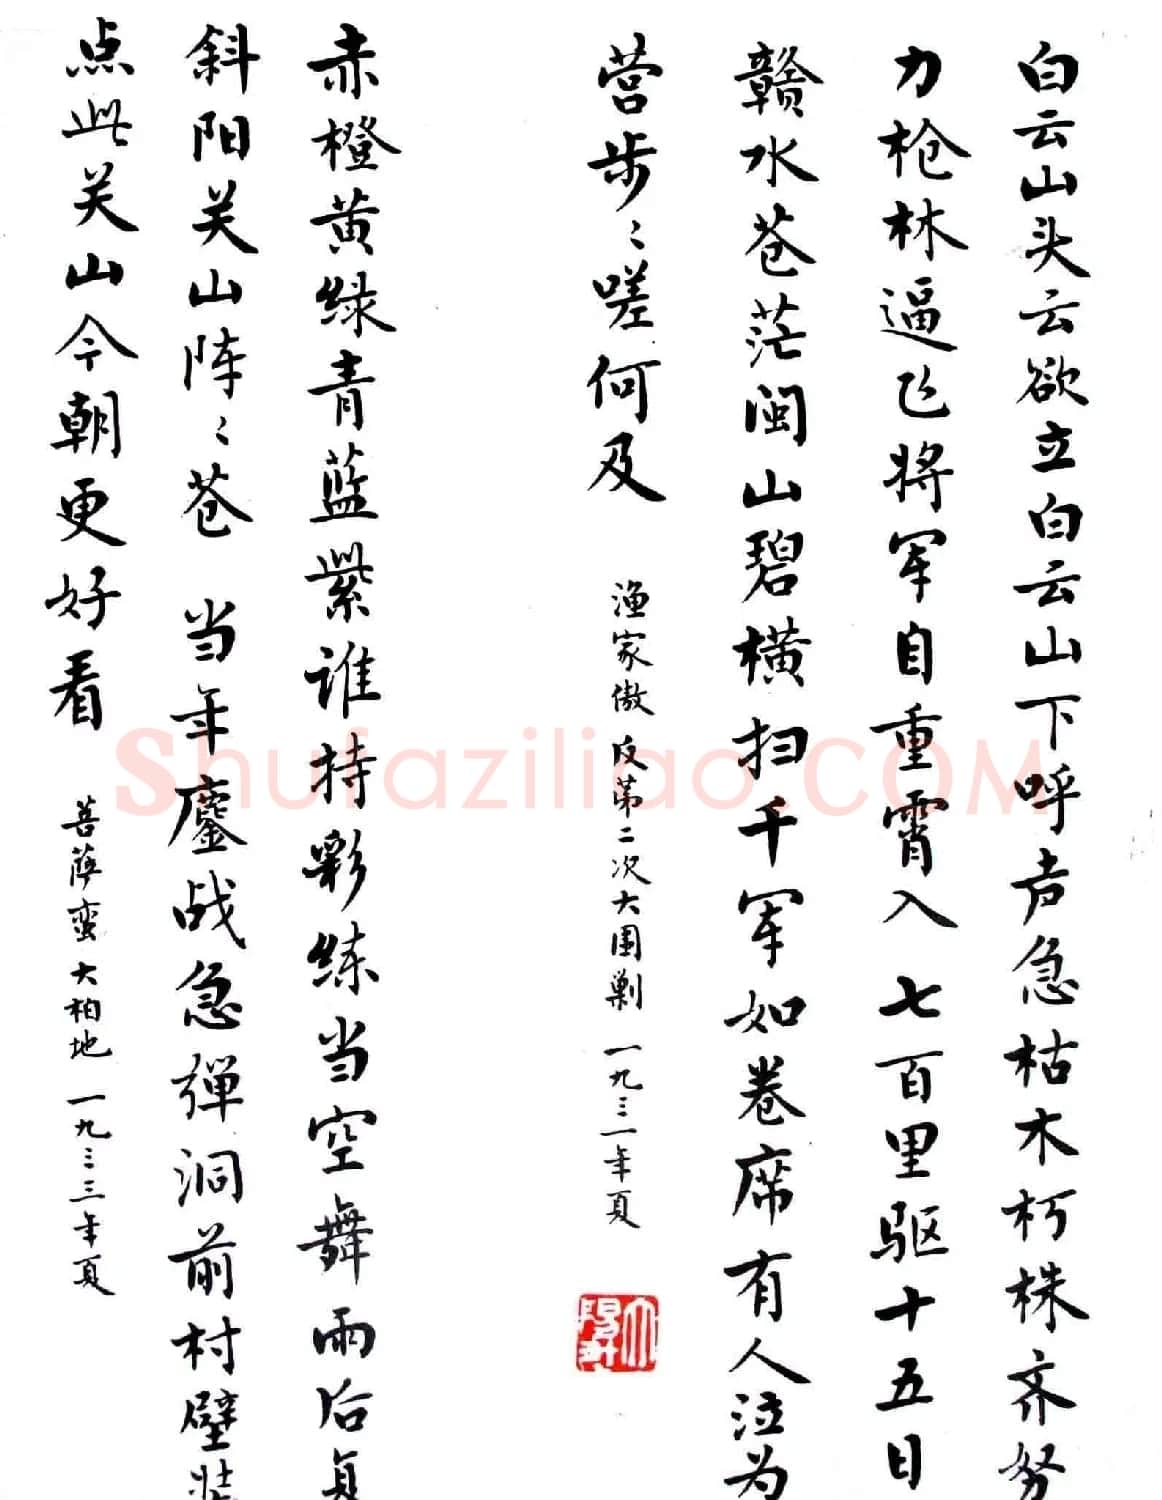 白云山头云欲立白云山下呼声急枯木朽株齐努
力枪林逼飞将军自重霄入 七百里驱十五日
赣水苍茫闽山碧横扫千军如卷席有人泣为
营步〻嗟何及 渔家傲 反第二次大围剿 一九三一年夏
赤橙黄绿青蓝紫谁持彩练当空舞雨后复
斜阳关山阵〻苍 当年鏖战急彈洞前村壁装
点此关山今朝更好看 菩萨蛮 大柏地 一九三三年夏
Shufaziliao.COM